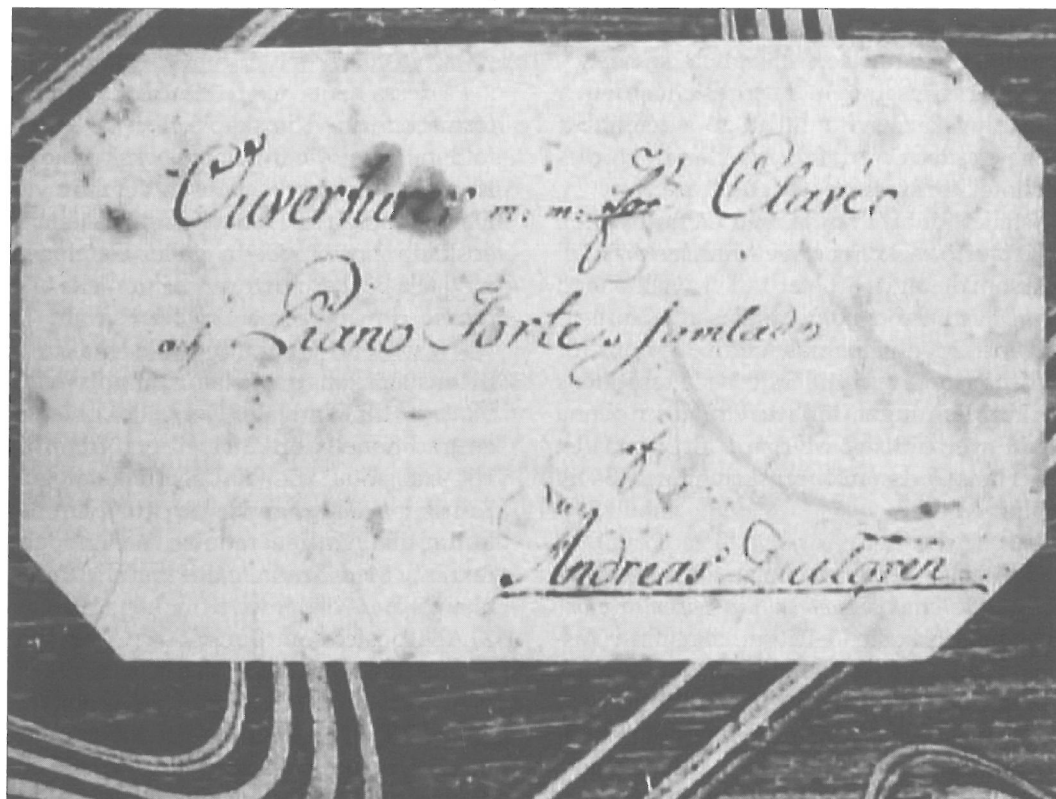 Ouverturer m. m. för Claver
och Piano Forte, samlade
af
Andreas Dullgren.